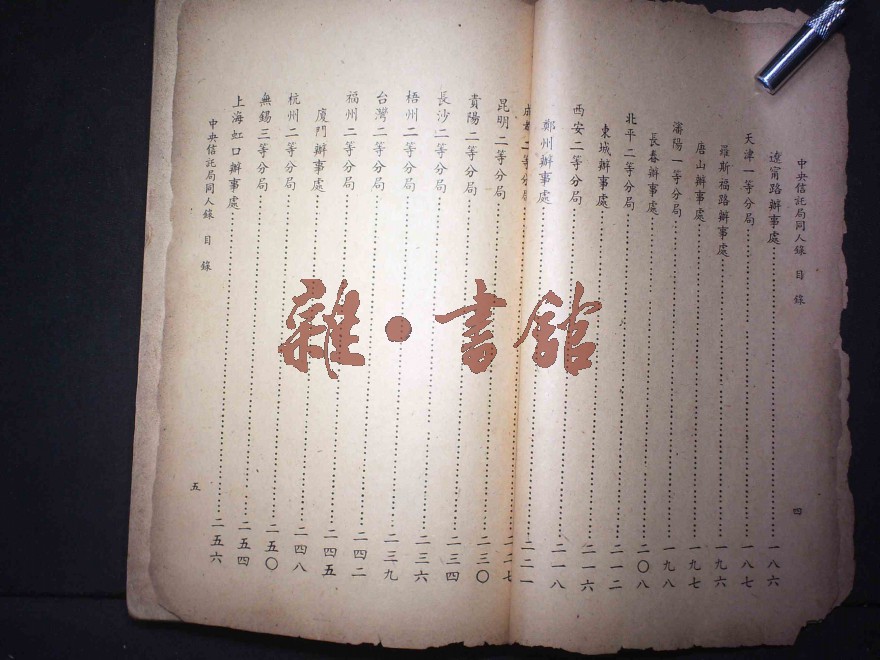 中央信託局同人錄 目錄 四
遼甯路辦事處……一八六
天津一等分局……一八七
羅斯福路辦事處……一九六
唐山辦事處……一九七
瀋陽一等分局……一九八
長春辦事處……二〇八
北平二等分局……二一二
東城辦事處……二一六
西安二等分局……二一八
鄭州辦事處……二二一
成都二等分局……二二七
昆明二等分局……二三〇
貴陽二等分局……二三四
長沙二等分局……二三六
梧州二等分局……二三九
台灣二等分局……二四二
福州二等分局……二四五
廈門辦事處……二四八
杭州二等分局……二五〇
無錫三等分局……二五四
上海虹口辦事處……二五六
中央信託局同人錄 目錄 五
雜·書館